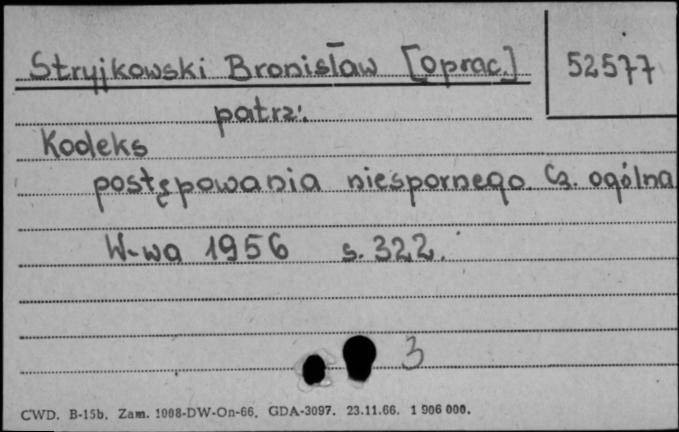 Stryjkowski Bronisław [oprac.]
52577
patrz:
Kodeks
postępowania niespornego. Cz. ogólna
W-wa 1956 s. 322.
3
CWD. B-15b. Zam. 1008-DW-On-66. GDA-3097. 23.11.66. 1 906 000.